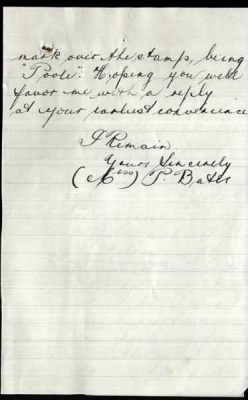 mark over the stamps, being
"Poole". Hoping you will
favor me with a reply
at your earliest convenience
I Remain
Yours Sincerely
(Miss) P. Bates